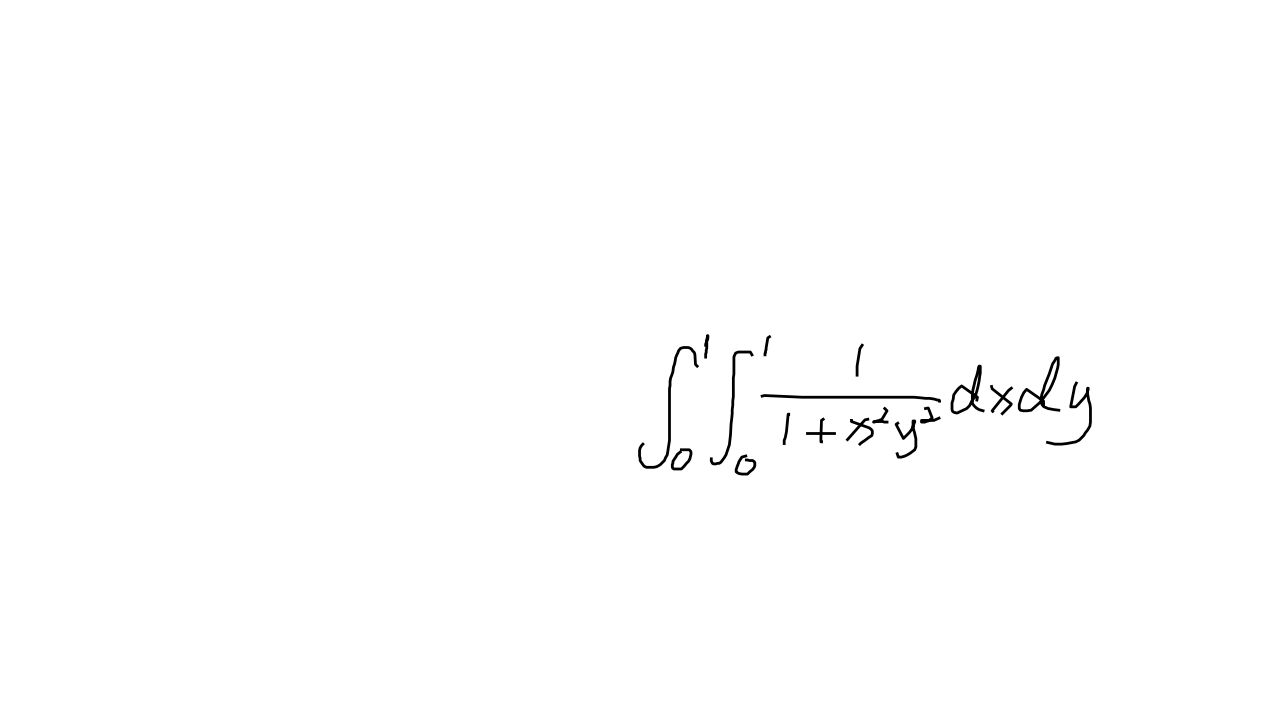 ∫₀¹ ∫₀¹ \frac{1}{1+x²y²} dxdy